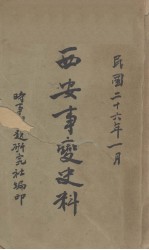 民國二十六年一月
西安事變史料
時事問題研究社編印